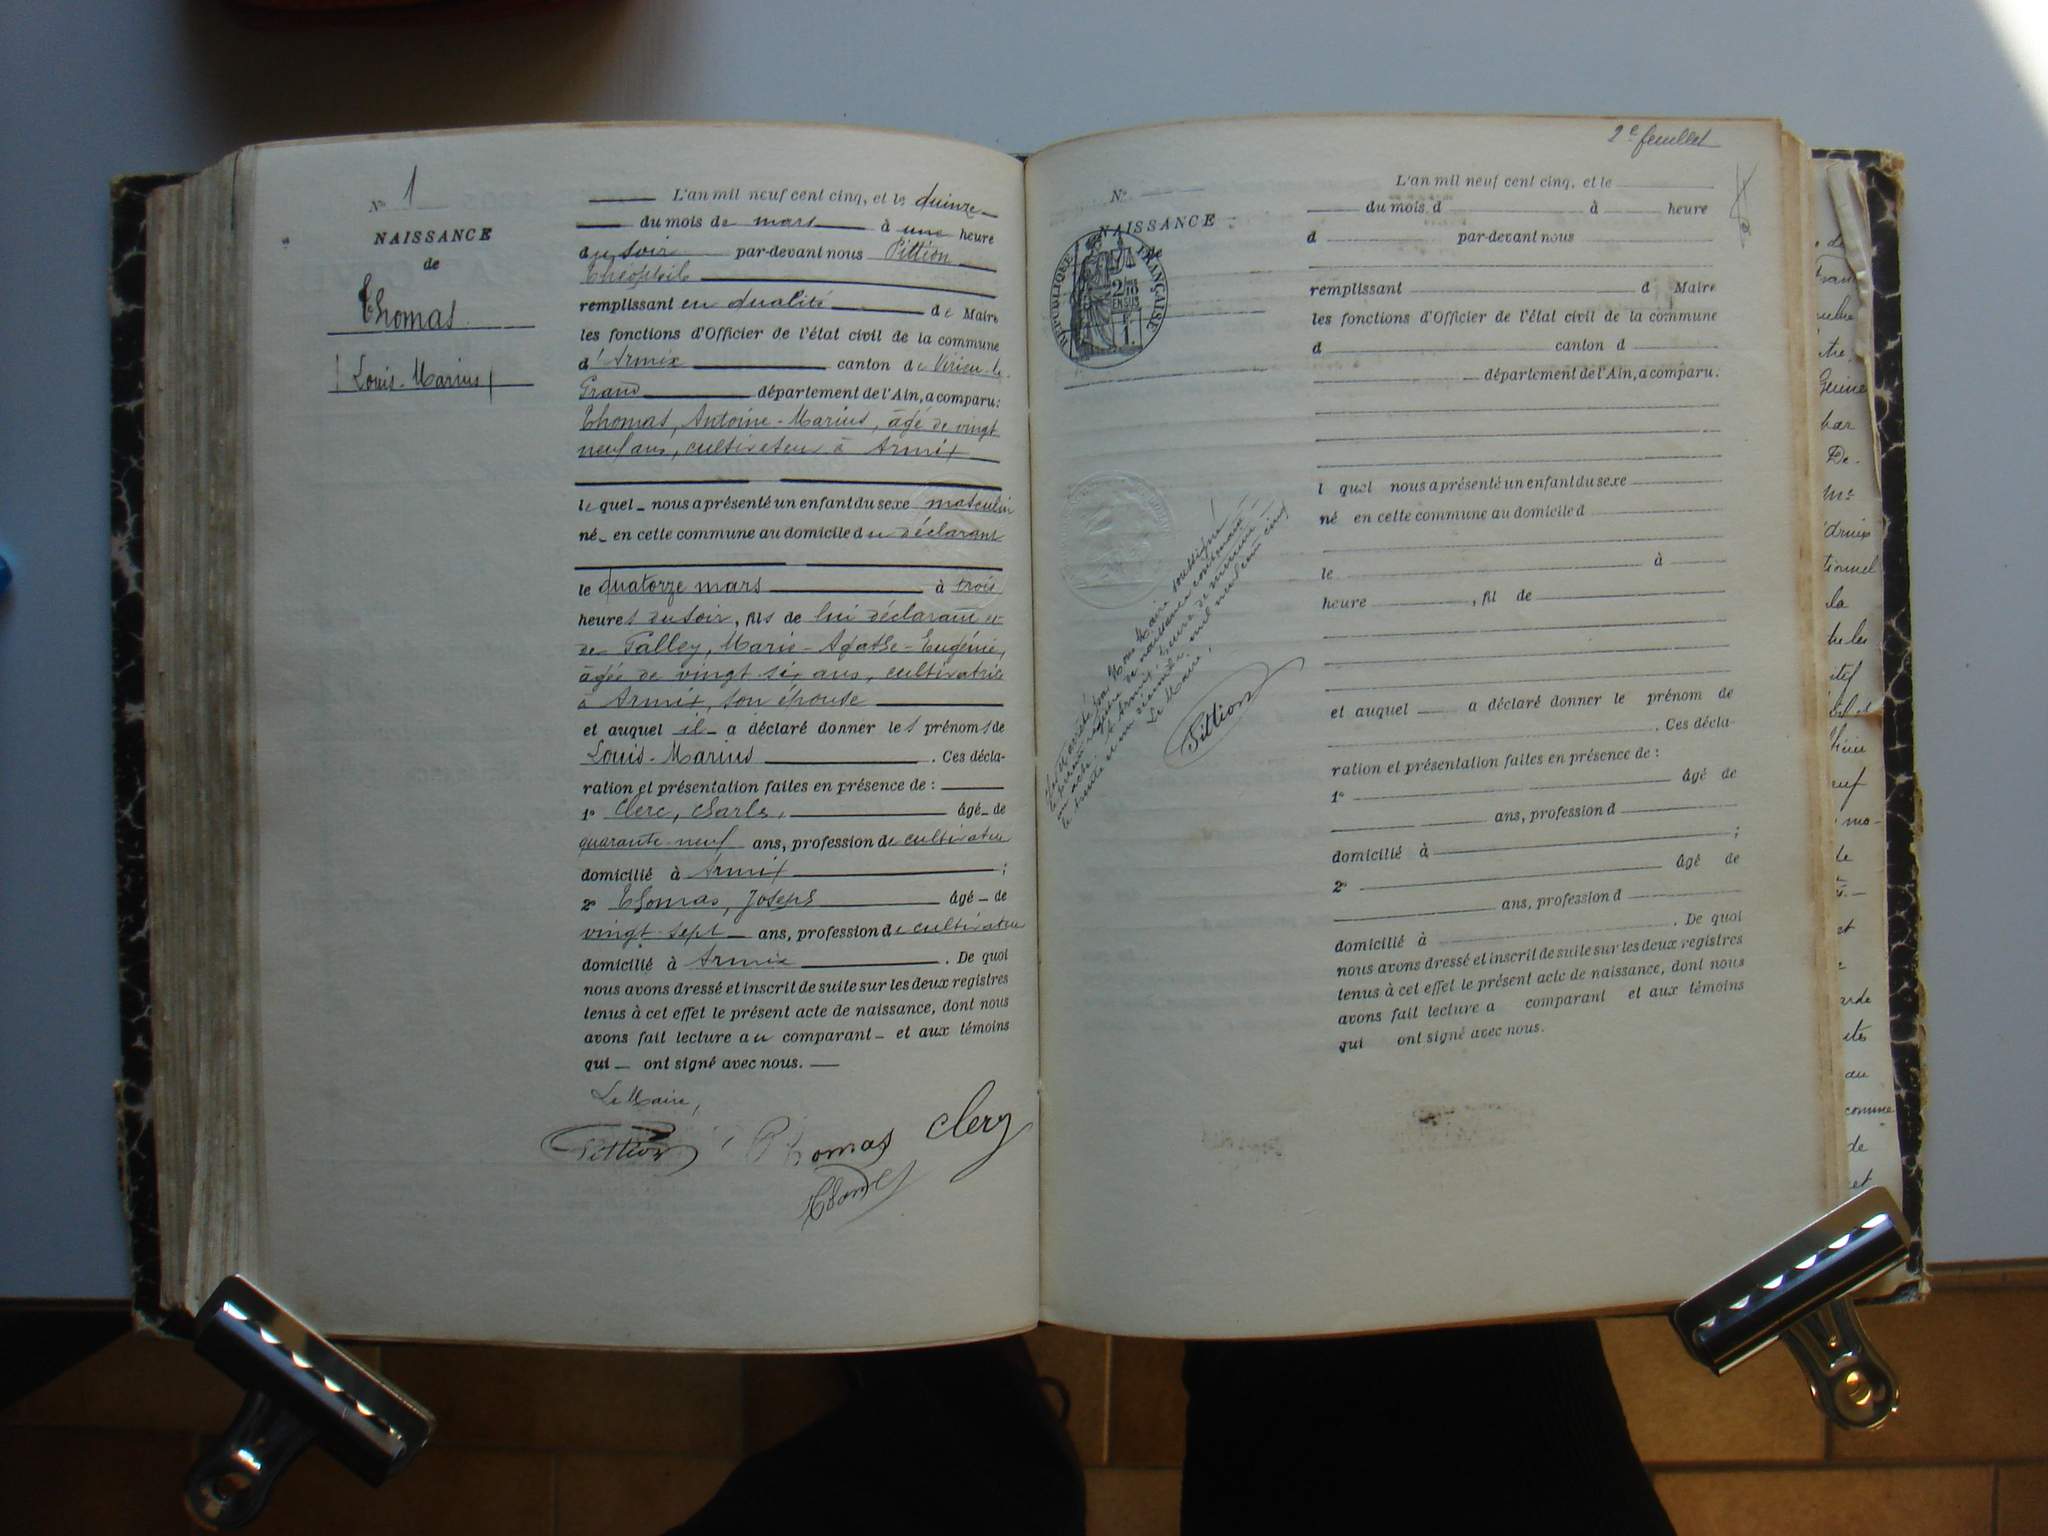 N° 1
NAISSANCE
de
Thomas
Louis-Marius
L'an mil neuf cent cinq, et le quinze
du mois de mars à une heure
du soir par-devant nous Pittion
Théophile
remplissant en qualité de Maire
les fonctions d'Officier de l'état civil de la commune
d'Armix canton de Virieu-le-
Grand département de l'Ain, a comparu:
Thomas, Antoine-Marius, âgé de vingt
neuf ans, cultivateur à Armix
lequel nous a présenté un enfant du sexe masculin
né en cette commune au domicile du déclarant
le quatorze mars à trois
heures du soir, fils de lui déclarant et
de Falley, Marie-Agathe-Eugénie,
âgée de vingt six ans, cultivatrice
à Armix, son épouse
et auquel il a déclaré donner les prénoms de
Louis-Marius. Ces décla-
ration et présentation faites en présence de:
1° Clerc, Charles, âgé de
quarante-neuf ans, profession de cultivateur
domicilié à Armix;
2° Thomas, Joseph âgé de
vingt-sept ans, profession de cultivateur
domicilié à Armix. De quoi
nous avons dressé et inscrit de suite sur les deux registres
tenus à cet effet le présent acte de naissance, dont nous
avons fait lecture au comparant et aux témoins
qui ont signé avec nous.
Le Maire,
Pittion Thomas Clerc
Thomas
2e feuillet
N°
NAISSANCE
de
RÉPUBLIQUE FRANÇAISE
L'an mil neuf cent cinq, et le
du mois d à heure
d par-devant nous
remplissant d Maire
les fonctions d'Officier de l'état civil de la commune
d canton d
département de l'Ain, a comparu:
l quel nous a présenté un enfant du sexe
né en cette commune au domicile d
le à
heure , fil de
et auquel a déclaré donner le prénom de
. Ces décla-
ration et présentation faites en présence de:
1° âgé de
ans, profession d
domicilié à ;
2° âgé de
ans, profession d
domicilié à . De quoi
nous avons dressé et inscrit de suite sur les deux registres
tenus à cet effet le présent acte de naissance, dont nous
avons fait lecture a comparant et aux témoins
qui ont signé avec nous.
Clos et arrêté par Nous Maire soussigné
le présent registre de naissance contenant
un acte. A Armix, heure de minuit
le trente et un décembre mil neuf cent cinq
Le Maire,
Pittion